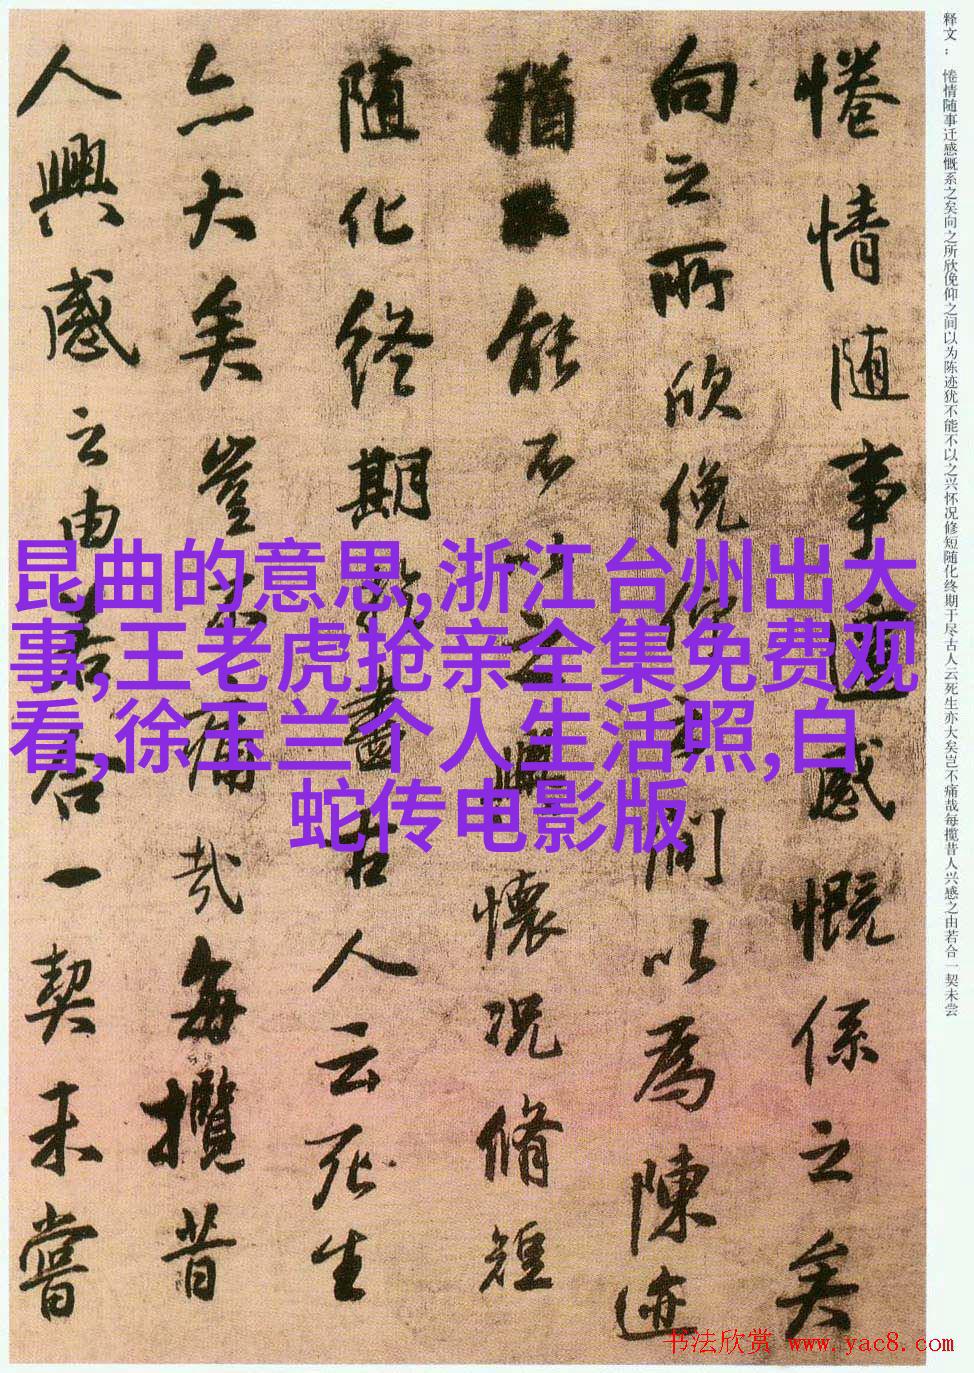 释文：惓情随事迁感慨系之矣向之所欣俛仰之间以为陈迹犹不能不以之兴怀况修短随化终期于尽古人云死生亦大矣岂不痛哉每揽昔人兴感之由若合一契未尝
惓情随事迁感慨係之矣
向之所欣俛仰之間以為陳迹
猶不能不以之興懷况脩短
随化終期於盡古人云死生
亦大矣豈不痛哉每攬昔
人興感之由若合一契未嘗
昆曲的意思,浙江台州出大
事,王老虎抢亲全集免费观
看,徐玉兰个人生活照,白
蛇传电影版
书法欣赏 www.yac8.com